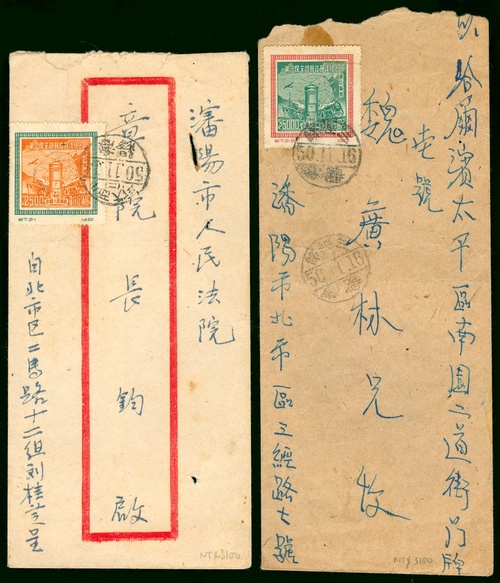 瀋陽市人民法院
章院長鈞啟
自北市区二馬路十二組刘桂芝呈
50.11.
2500
紀7.2-1
NTX$100
哈爾濱太平區南圍二道街門牌
壱號
魏廣林兄收
瀋陽市北市區三經路七號
50.11.16
50.11.16
5000
NTX$100